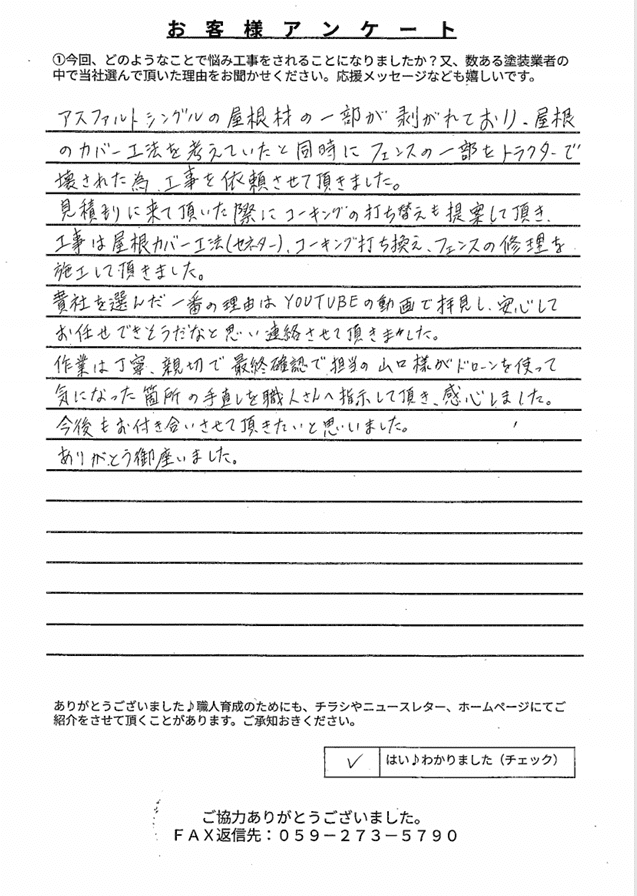 お客様アンケート
①今回、どのようなことで悩み工事をされることになりましたか？又、数ある塗装業者の
中で当社選んで頂いた理由をお聞かせください。応援メッセージなども嬉しいです。
アスファルトシングルの屋根材の一部が剥がれており、屋根
のカバー工法を考えていたと同時にフェンスの一部をトラクターで
壊された為、工事を依頼させて頂きました。
見積もりに来て頂いた際にコーキングの打ち替えも提案して頂き、
工事は屋根カバー工法(セネター)、コーキング打ち換え、フェンスの修理を
施工して頂きました。
貴社を選んだ一番の理由はYOUTUBEの動画で拝見し、安心して
お任せできそうだなと思い連絡させて頂きました。
作業は丁寧、親切で最終確認で担当の山口様がドローンを使って
気になった箇所の手直しを職人さんへ指示して頂き、感心しました。
今後もお付き合いさせて頂きたいと思いました。
ありがとう御座いました。
ありがとうございました♪職人育成のためにも、チラシやニュースレター、ホームページにてご
紹介をさせて頂くことがあります。ご承知おきください。
✓ はい♪わかりました（チェック）
ご協力ありがとうございました。
ＦＡＸ返信先：０５９－２７３－５７９０